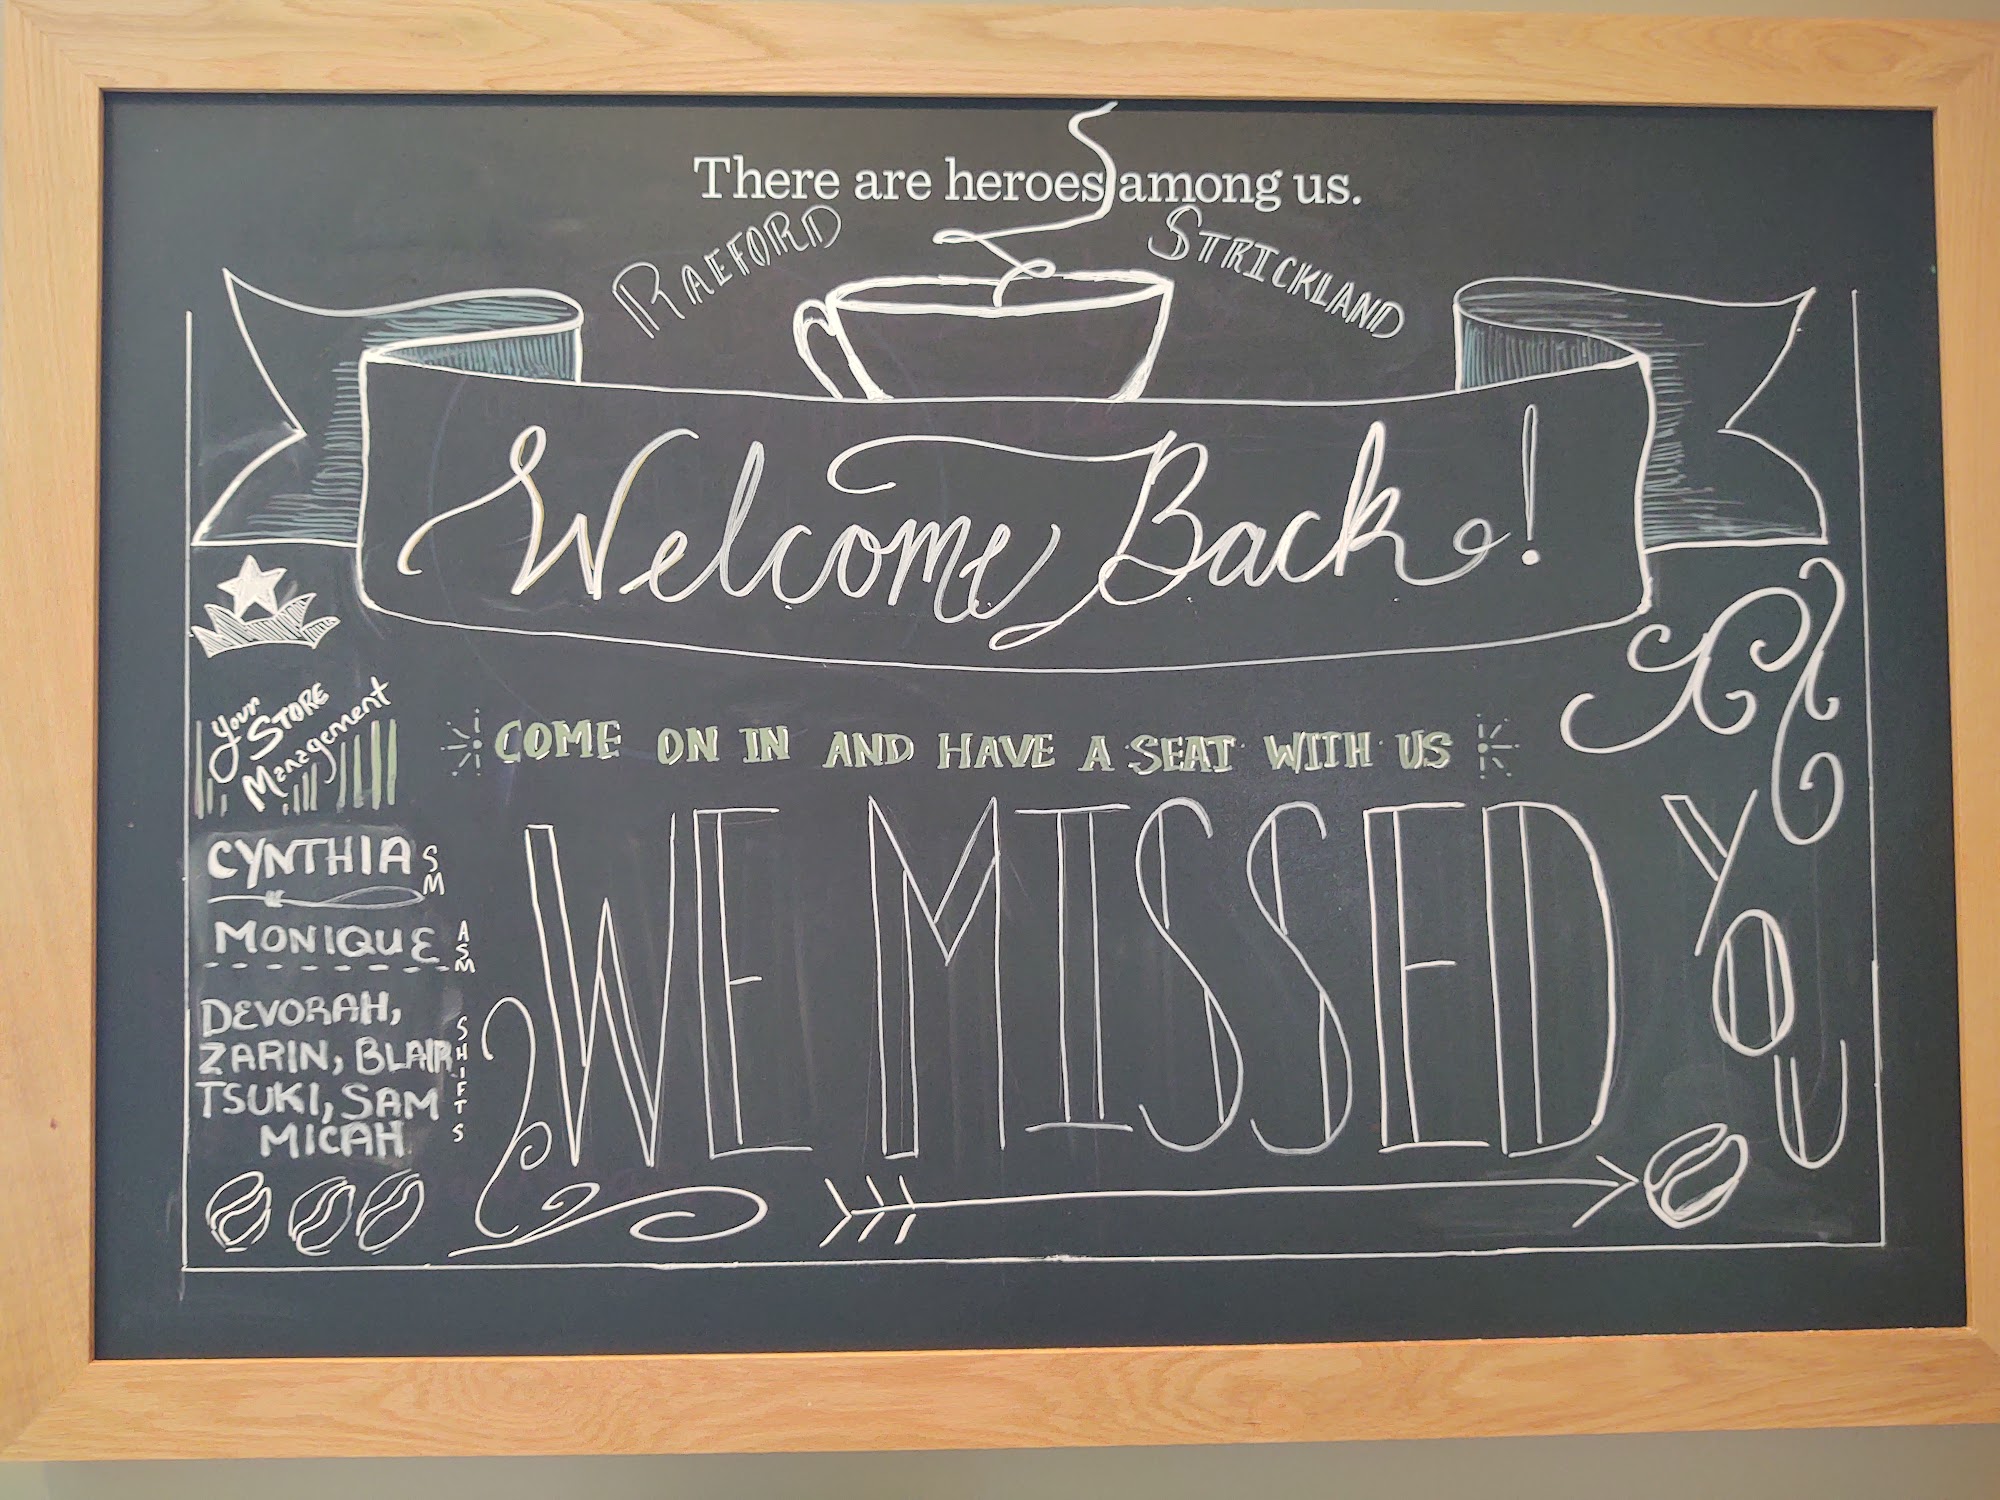 There are heroes among us.
RAEFORD STRICKLAND
Welcome Back!
Your
STORE
Management
COME ON IN AND HAVE A SEAT WITH US
WE MISSED YOU
CYNTHIA SM
MONIQUE ASM
DEVORAH,
ZARIN, BLAIR
TSUKI, SAM
MICAH
SHIFTS